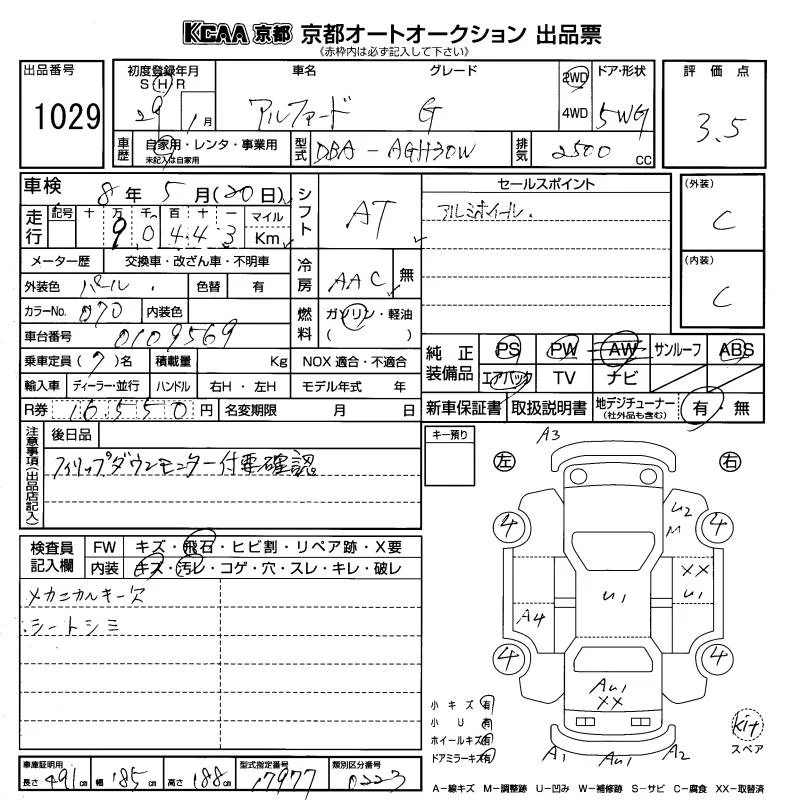 KCAA 京都 京都オートオークション 出品票
《赤枠内は必ず記入して下さい》
出品番号
1029
初度登録年月
S H R
29 1月
車名
アルファード
グレード
G
2WD
4WD
ドア・形状
5WG
評価点
3.5
車歴
自家用・レンタ・事業用
未記入は自家用
型式
DBA-AGH30W
排気
2500 CC
車検 8年 5月(20日)
シフト
AT
走行
記号 十 万 千 百 十 一
9 0 4 4 3
マイル
Km
メーター歴 交換車・改ざん車・不明車
冷房
AAC 無
外装色 パール 色替 有
カラーNo. 070 内装色
燃料
ガソリン・軽油
( )
車台番号 0109569
乗車定員(7)名 積載量 Kg NOX 適合・不適合
輸入車 ディーラー・並行 ハンドル 右H・左H モデル年式 年
R券 16550円 名変期限 月 日
セールスポイント
アルミホイール.
(外装)
C
(内装)
C
純正装備品
PS PW AW サンルーフ ABS
エアバック TV ナビ
新車保証書 取扱説明書 地デジチューナー(社外品も含む) 有・無
注意事項(出品店記入)
後日品
フィリップダウンモニター付要確認
キー預り
検査員記入欄
FW キズ・飛石・ヒビ割・リペア跡・X要
内装 キズ・汚レ・コゲ・穴・スレ・キレ・破レ
メカニカルキー欠
シートシミ
A3
左 右
U2
M
4 4
XX
U1
U1
A4
4 4
AU1
XX
A1 AU1 A2
小キズ有
小U有
ホイールキズ有
ドアミラーキズ有
kit
スペア
車庫証明用
長さ 491cm 幅 185cm 高さ 188cm
型式指定番号
17977
類別区分番号
0223
A−線キズ M−調整跡 U−凹み W−補修跡 S−サビ C−腐食 XX−取替済